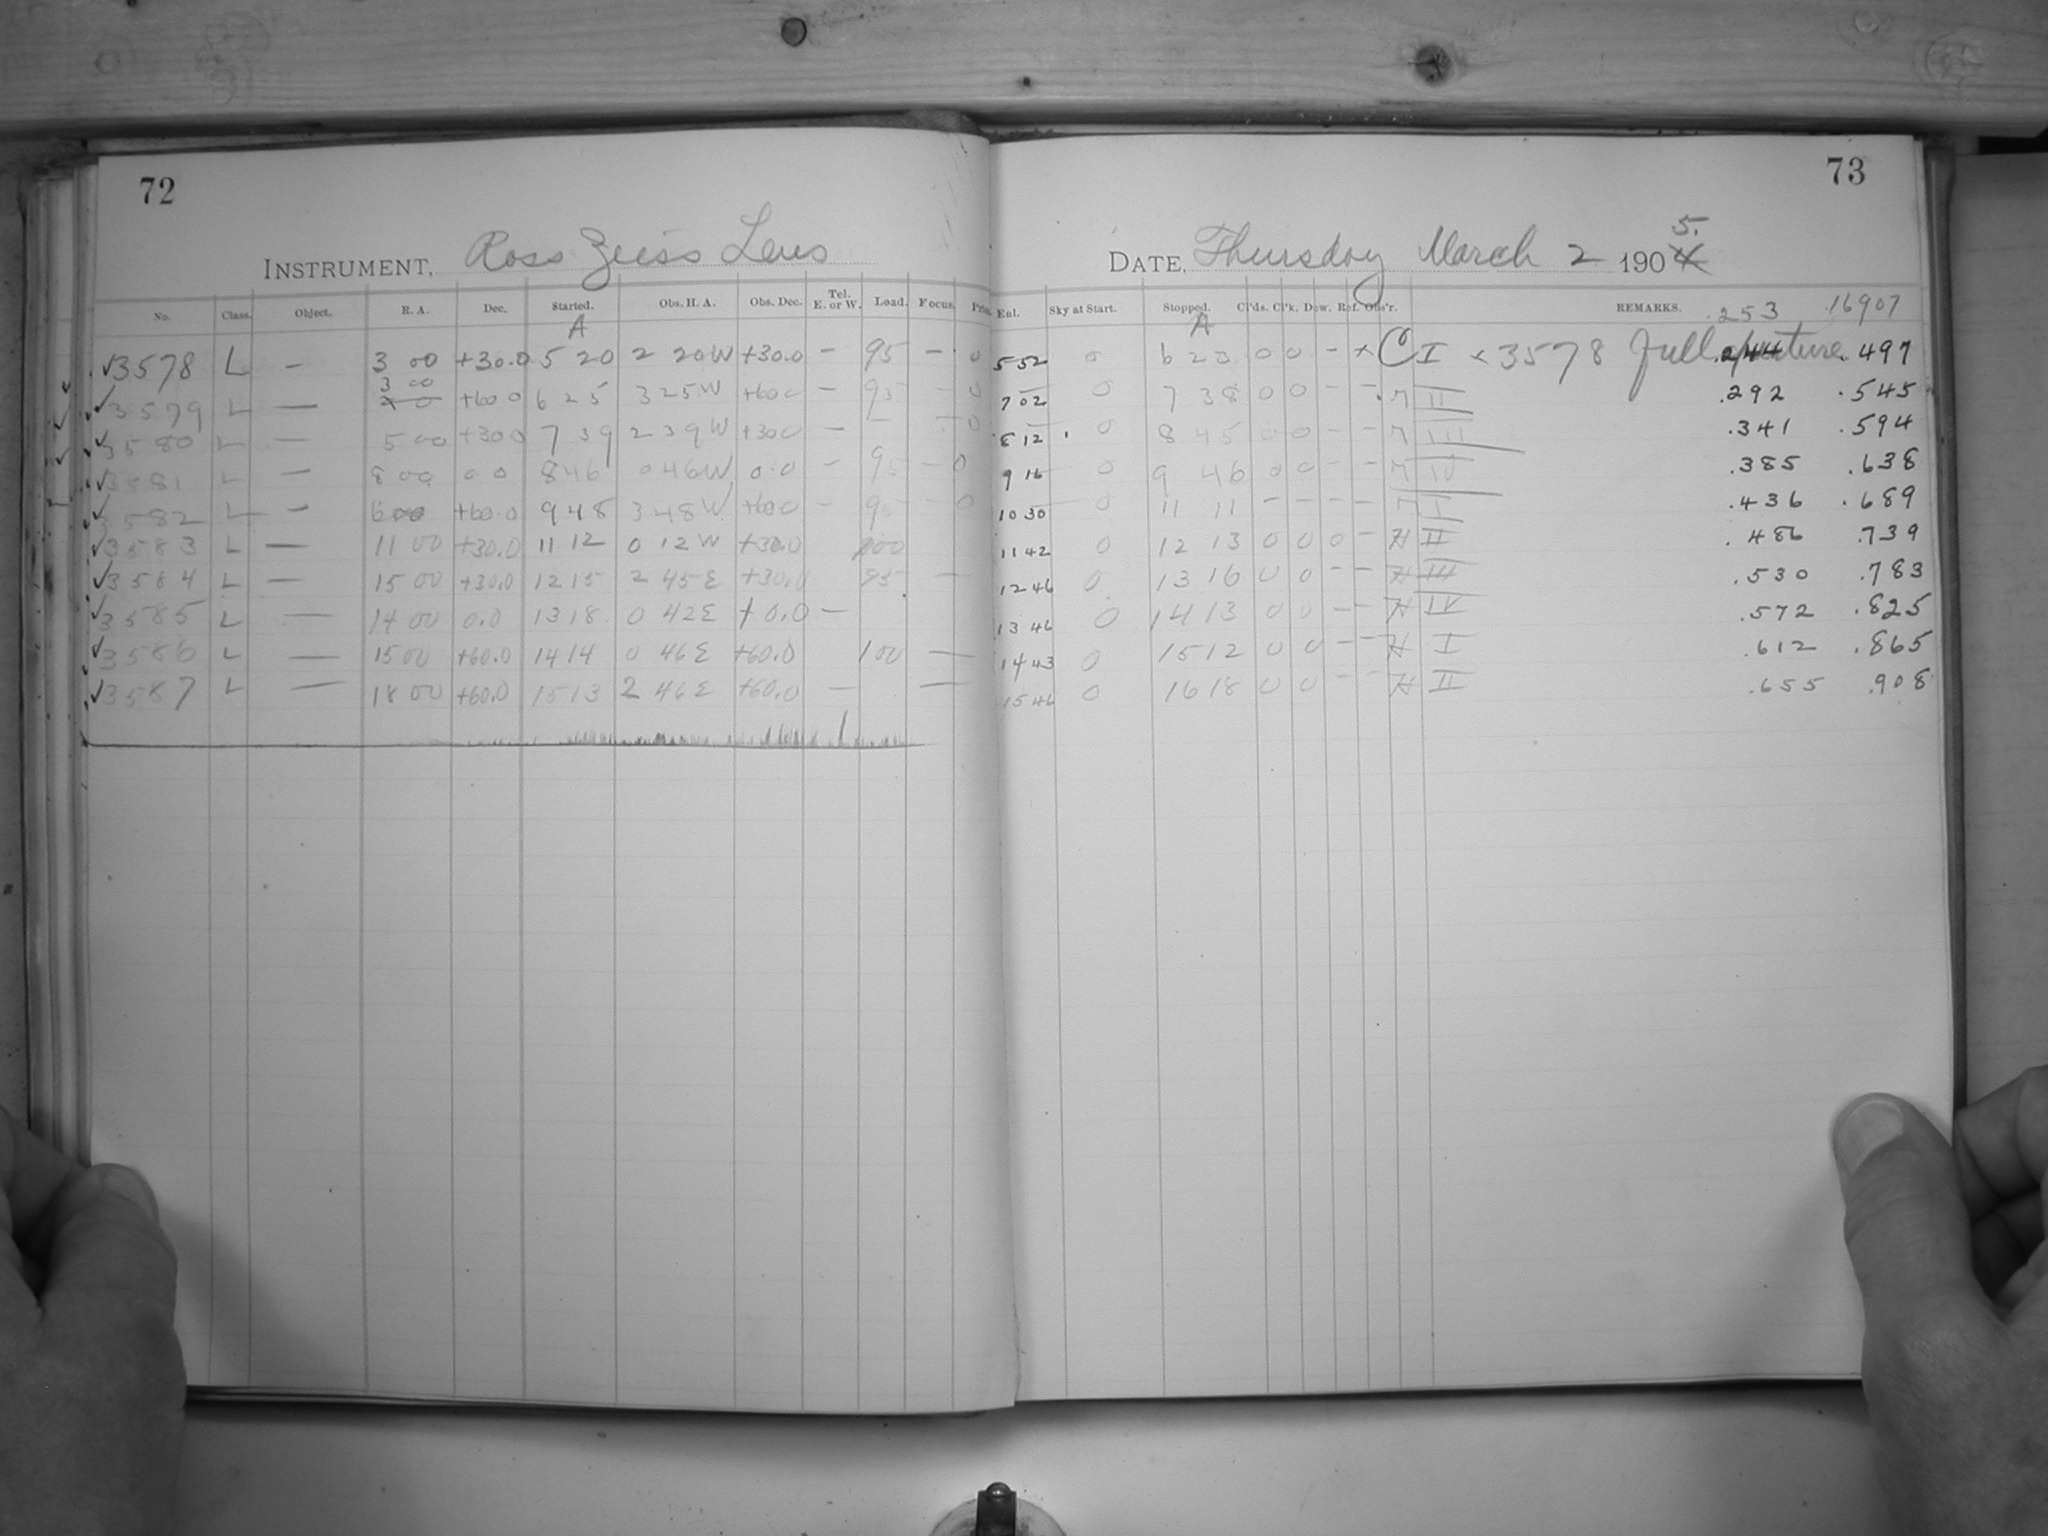 72
INSTRUMENT, Ross Zeiss Lens
No. Class. Object. R. A. Dec. Started. Obs. H. A. Obs. Dec. Tel. E. or W. Load. Focus.
A
√3578 L — 3 00 +30.0 5 20 2 20W +30.0 – 95 – 0
√3579 L — 3 00 +60 0 6 25 3 25W +60 0 – 95 – 0
√3580 L — 5 00 +30 0 7 39 2 39W +30 0 – – 0
√3581 L — 8 00 0 0 8 46 0 46W 0.0 – 95 – 0
√3582 L — 6 00 +60.0 9 48 3 48W +60 0 – 95 – 0
√3583 L — 11 00 +30.0 11 12 0 12W +30.0 100
√3584 L — 15 00 +30.0 12 15 2 45E +30.0 95 —
√3585 L — 14 00 0.0 13 18 0 42E +0.0 —
√3586 L — 15 00 +60.0 14 14 0 46E +60.0 100 —
√3587 L — 18 00 +60.0 15 13 2 46E +60.0 — —
73
DATE, Thursday March 2 1905.
Sky at Start. Stopped. Cl'ds. Cl'k. Dew. Ref. Obs'r. REMARKS. .253 .16907
A
5 52 0 6 23 0 0 – × C I × 3578 Full aperture .244 .497
7 02 0 7 38 0 0 – – II .292 .545
8 12 0 8 45 0 0 – – III .341 .594
9 16 0 9 46 0 0 – – IV .385 .638
10 30 0 11 11 – – – – I .436 .689
11 42 0 12 13 0 0 0 – H II .486 .739
12 46 0 13 16 0 0 – – H III .530 .783
13 46 0 14 13 0 0 – – H IV .572 .825
14 43 0 15 12 0 0 – – H I .612 .865
15 46 0 16 18 0 0 – – H II .655 .908